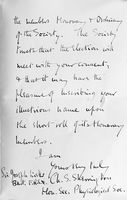 the members Honorary & Ordinary
of the Society. The Society
trusts that the election will
meet with your consent,
& that it may have the
pleasure of inscribing your
illustrious name upon
the short roll of its Honorary
members.
I am
Yours very truly
Sir Joseph Lister C. S. Sherrington
Bart. F.R.S. Hon. Sec. Physiological Soc.